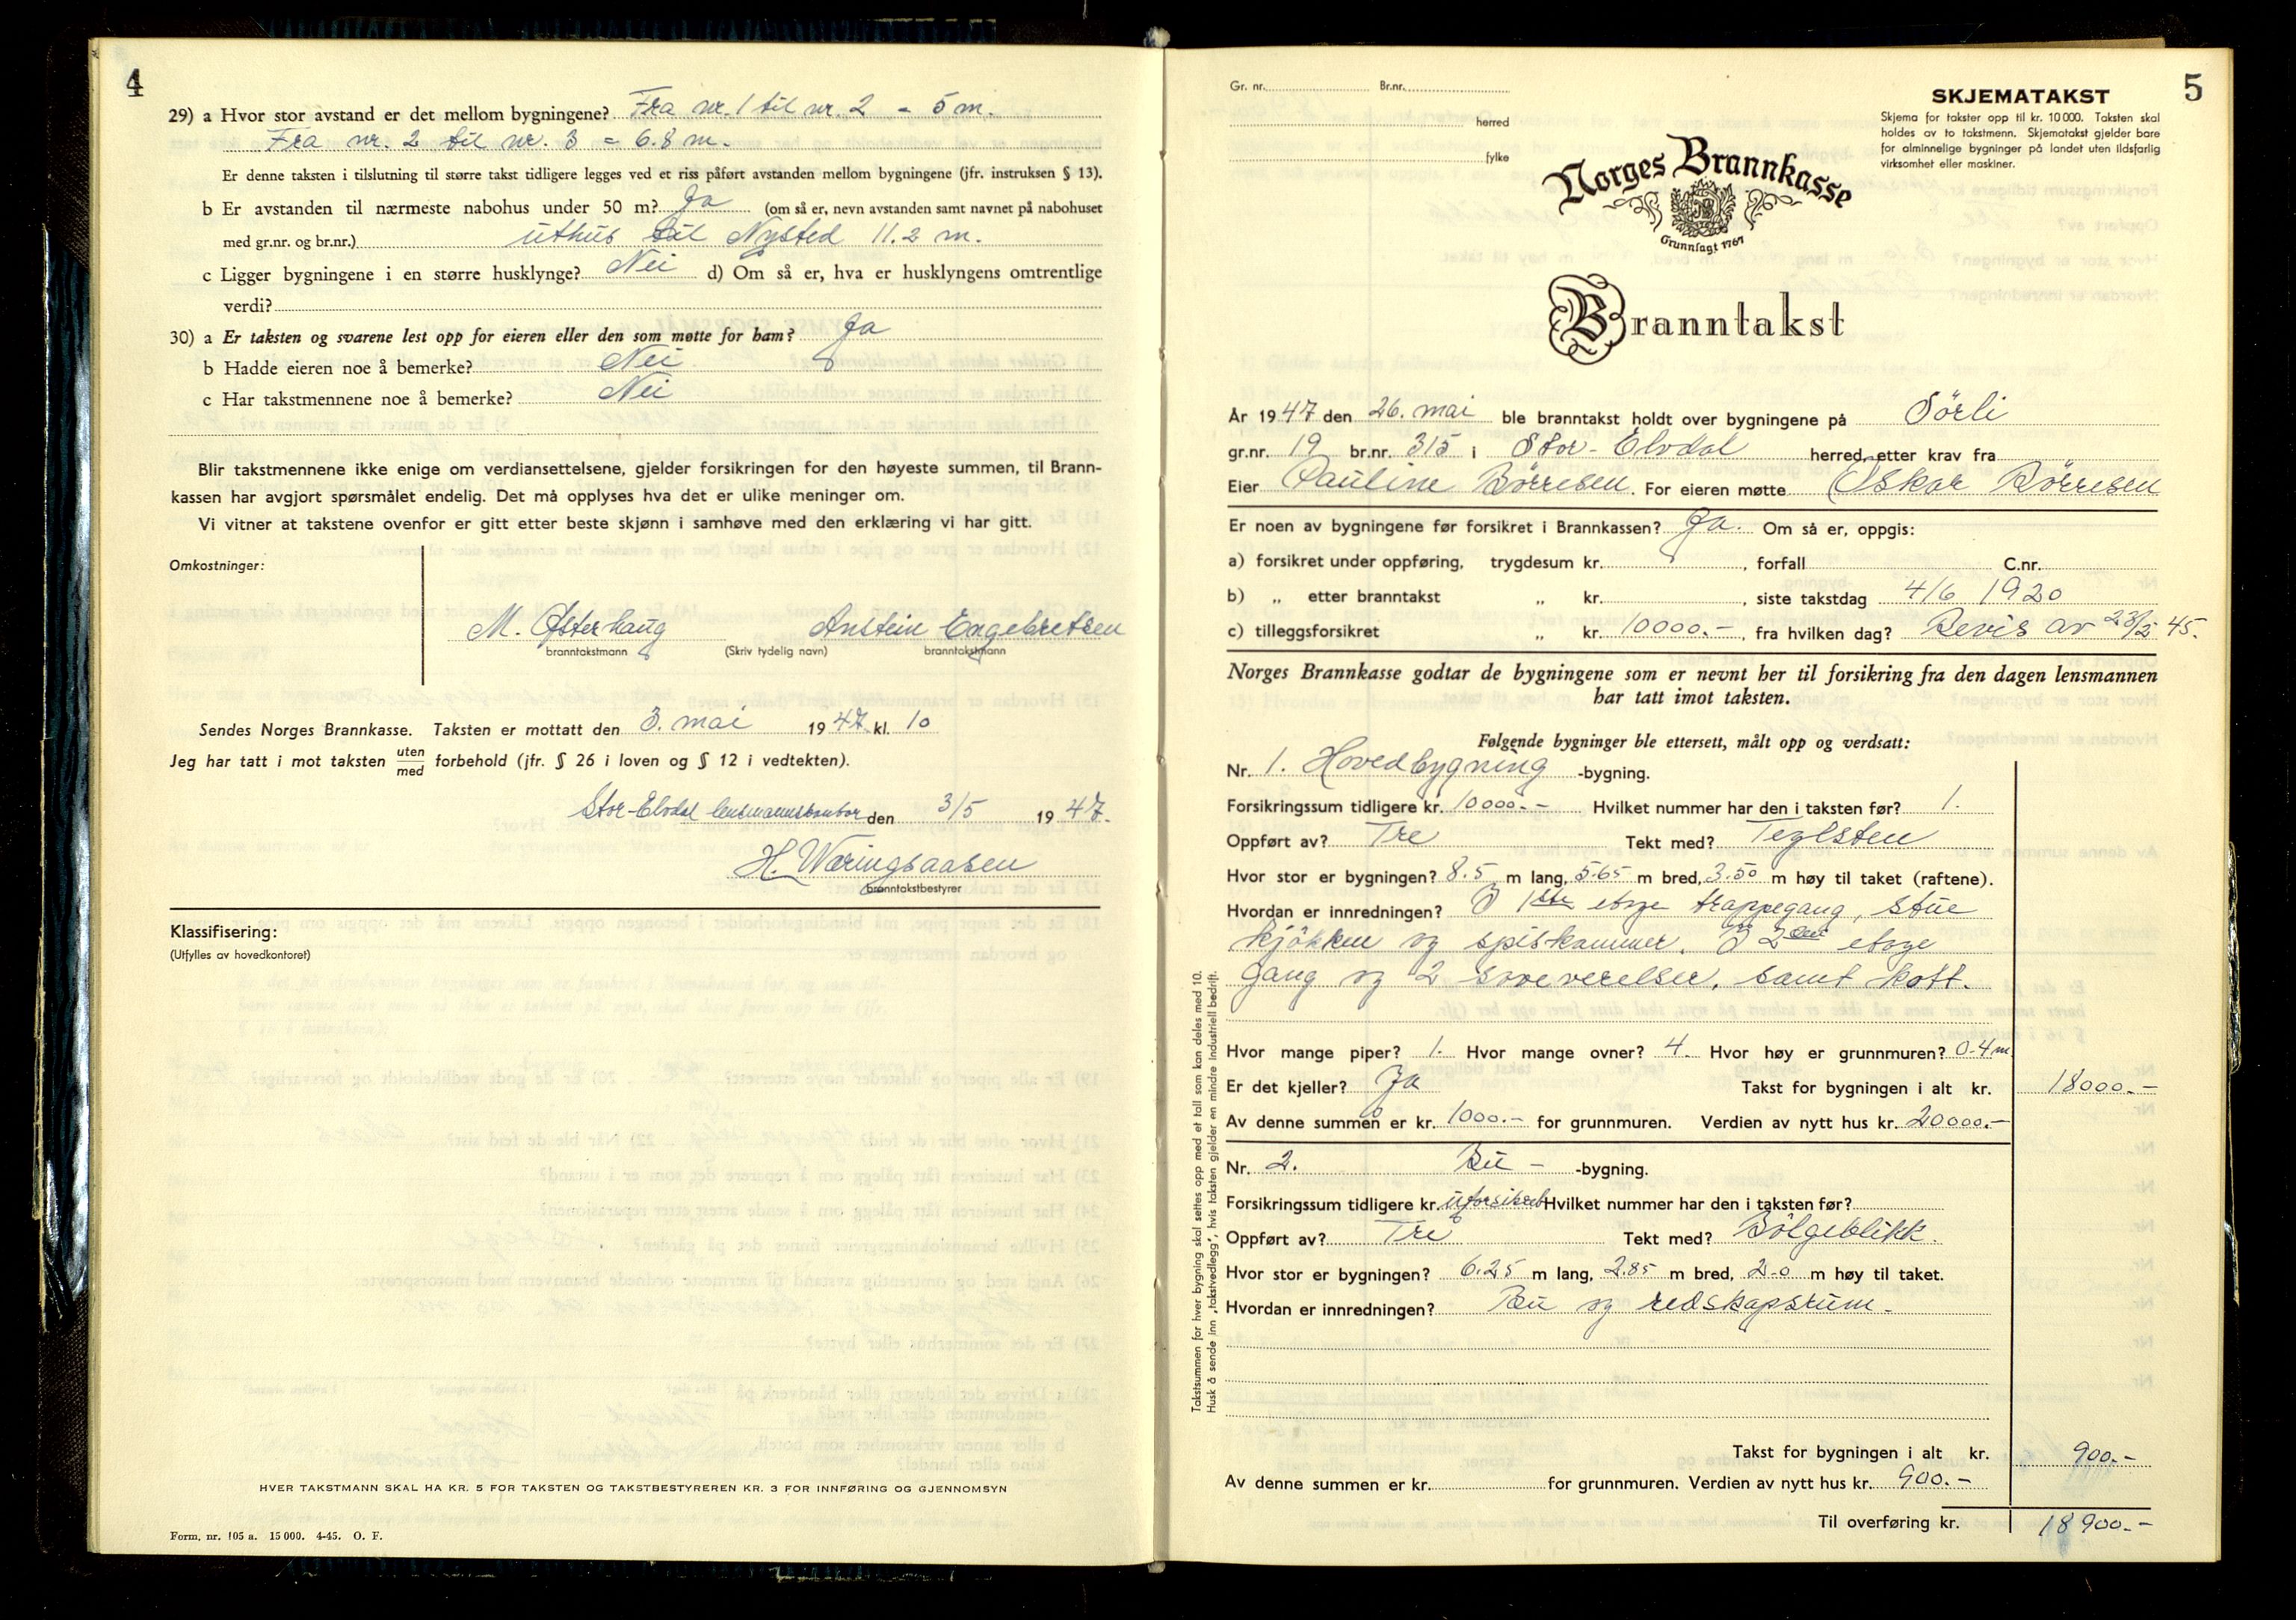 4
29) a Hvor stor avstand er det mellom bygningene? Fra nr. 1 til nr. 2 = 5 m.
Fra nr. 2 til nr. 3 = 6.8 m.
Er denne taksten i tilslutning til større takst tidligere legges ved et riss påført avstanden mellom bygningene (jfr. instruksen § 13).
b Er avstanden til nærmeste nabohus under 50 m? Ja (om så er, nevn avstanden samt navnet på nabohuset
med gr.nr. og br.nr.) uthus til Nysted 11.2 m.
c Ligger bygningene i en større husklynge? Nei d) Om så er, hva er husklyngens omtrentlige
verdi?
30) a Er taksten og svarene lest opp for eieren eller den som møtte for ham? Ja
b Hadde eieren noe å bemerke? Nei
c Har takstmennene noe å bemerke? Nei
Blir takstmennene ikke enige om verdiansettelsene, gjelder forsikringen for den høyeste summen, til Brann-
kassen har avgjort spørsmålet endelig. Det må opplyses hva det er ulike meninger om.
Vi vitner at takstene ovenfor er gitt etter beste skjønn i samhøve med den erklæring vi har gitt.
Omkostninger:
M. Østerhaug Anstein Engebretsen
branntakstmann (Skriv tydelig navn) branntakstmann
Sendes Norges Brannkasse. Taksten er mottatt den 3. mai 1947 kl. 10
Jeg har tatt i mot taksten uten/med forbehold (jfr. § 26 i loven og § 12 i vedtekten).
Stor-Elvdal lensmannskontor den 3/5 1947.
H. Wæringsaasen
branntakstbestyrer
Klassifisering:
(Utfylles av hovedkontoret)
HVER TAKSTMANN SKAL HA KR. 5 FOR TAKSTEN OG TAKSTBESTYREREN KR. 3 FOR INNFØRING OG GJENNOMSYN
Form. nr. 105 a. 15 000. 4-45. O. F.
5
Gr. nr. Br.nr.
herred
fylke
SKJEMATAKST
Skjema for takster opp til kr. 10 000. Taksten skal
holdes av to takstmenn. Skjematakst gjelder bare
for alminnelige bygninger på landet uten ildsfarlig
virksomhet eller maskiner.
Norges Brannkasse
Grunnlagt 1767
Branntakst
År 1947 den 26. mai ble branntakst holdt over bygningene på Sörli
gr.nr. 19 br.nr. 315 i Stor-Elvdal herred, etter krav fra
Eier Pauline Börresen. For eieren møtte Oskar Börresen
Er noen av bygningene før forsikret i Brannkassen? Ja. Om så er, oppgis:
a) forsikret under oppføring, trygdesum kr. , forfall C.nr.
b) „ etter branntakst „ kr. , siste takstdag 4/6 1920
c) tilleggsforsikret „ kr. 10000.- , fra hvilken dag? Bevis av 28/2 45.
Norges Brannkasse godtar de bygningene som er nevnt her til forsikring fra den dagen lensmannen
har tatt imot taksten.
Følgende bygninger ble ettersett, målt opp og verdsatt:
Nr. 1. Hovedbygning -bygning.
Forsikringssum tidligere kr. 10000.- Hvilket nummer har den i taksten før? 1.
Oppført av? Tre Tekt med? Teglsten
Hvor stor er bygningen? 8.5 m lang, 5.65 m bred, 3.50 m høy til taket (raftene).
Hvordan er innredningen? I 1ste etage trappegang, stue
kjökken og spiskammer. I 2den etage
gang og 2 soveverelser, samt kott.
Hvor mange piper? 1. Hvor mange ovner? 4. Hvor høy er grunnmuren? 0.4 m
Er det kjeller? Ja Takst for bygningen i alt kr. 18000.-
Av denne summen er kr. 1000.- for grunnmuren. Verdien av nytt hus kr. 20000.-
Nr. 2. Bu - -bygning.
Forsikringssum tidligere kr. uforsikret Hvilket nummer har den i taksten før?
Oppført av? Tre Tekt med? Bölgeblikk.
Hvor stor er bygningen? 6.25 m lang, 2.85 m bred, 2.0 m høy til taket.
Hvordan er innredningen? Bu og redskapsrum.
Takst for bygningen i alt kr. 900.-
Av denne summen er kr. for grunnmuren. Verdien av nytt hus kr. 900.-
Til overføring kr. 18900.-
Takstsummen for hver bygning skal settes opp med et tall som kan deles med 10.
Husk å sende inn „takstvedlegg", hvis taksten gjelder en mindre industriell bedrift.